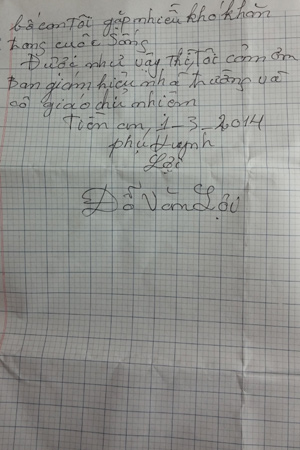 bố con tôi gặp nhiều khó khăn
trong cuộc sống
Được như vậy thì tôi cảm ơn
Ban giám hiệu nhà trường và
cô giáo chủ nhiệm
Tiên an, 1-3-2014
phụ huynh
Lợi
Đỗ Văn Lợi